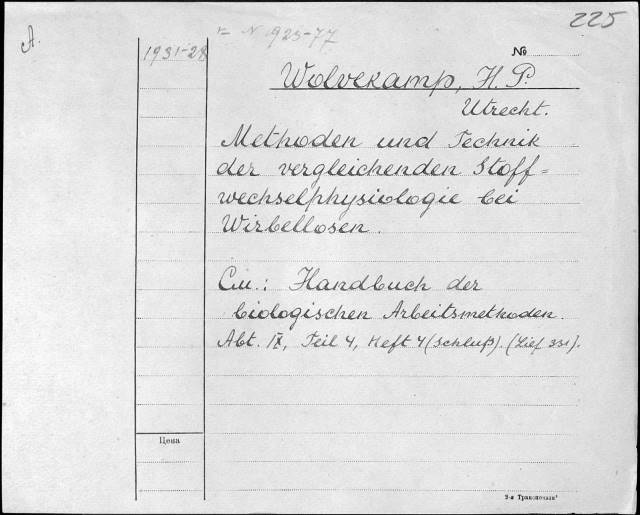 225
A.
= N 1923-77
1931-28
№
Wolvekamp, H. P.
Utrecht.
Methoden und Technik
der vergleichenden Stoff=
wechselphysiologie bei
Wirbellosen.
См.: Handbuch der
biologischen Arbeitsmethoden.
Abt. IX, Teil 4, Heft 4 (Schluß). (Lief 331).
Цена